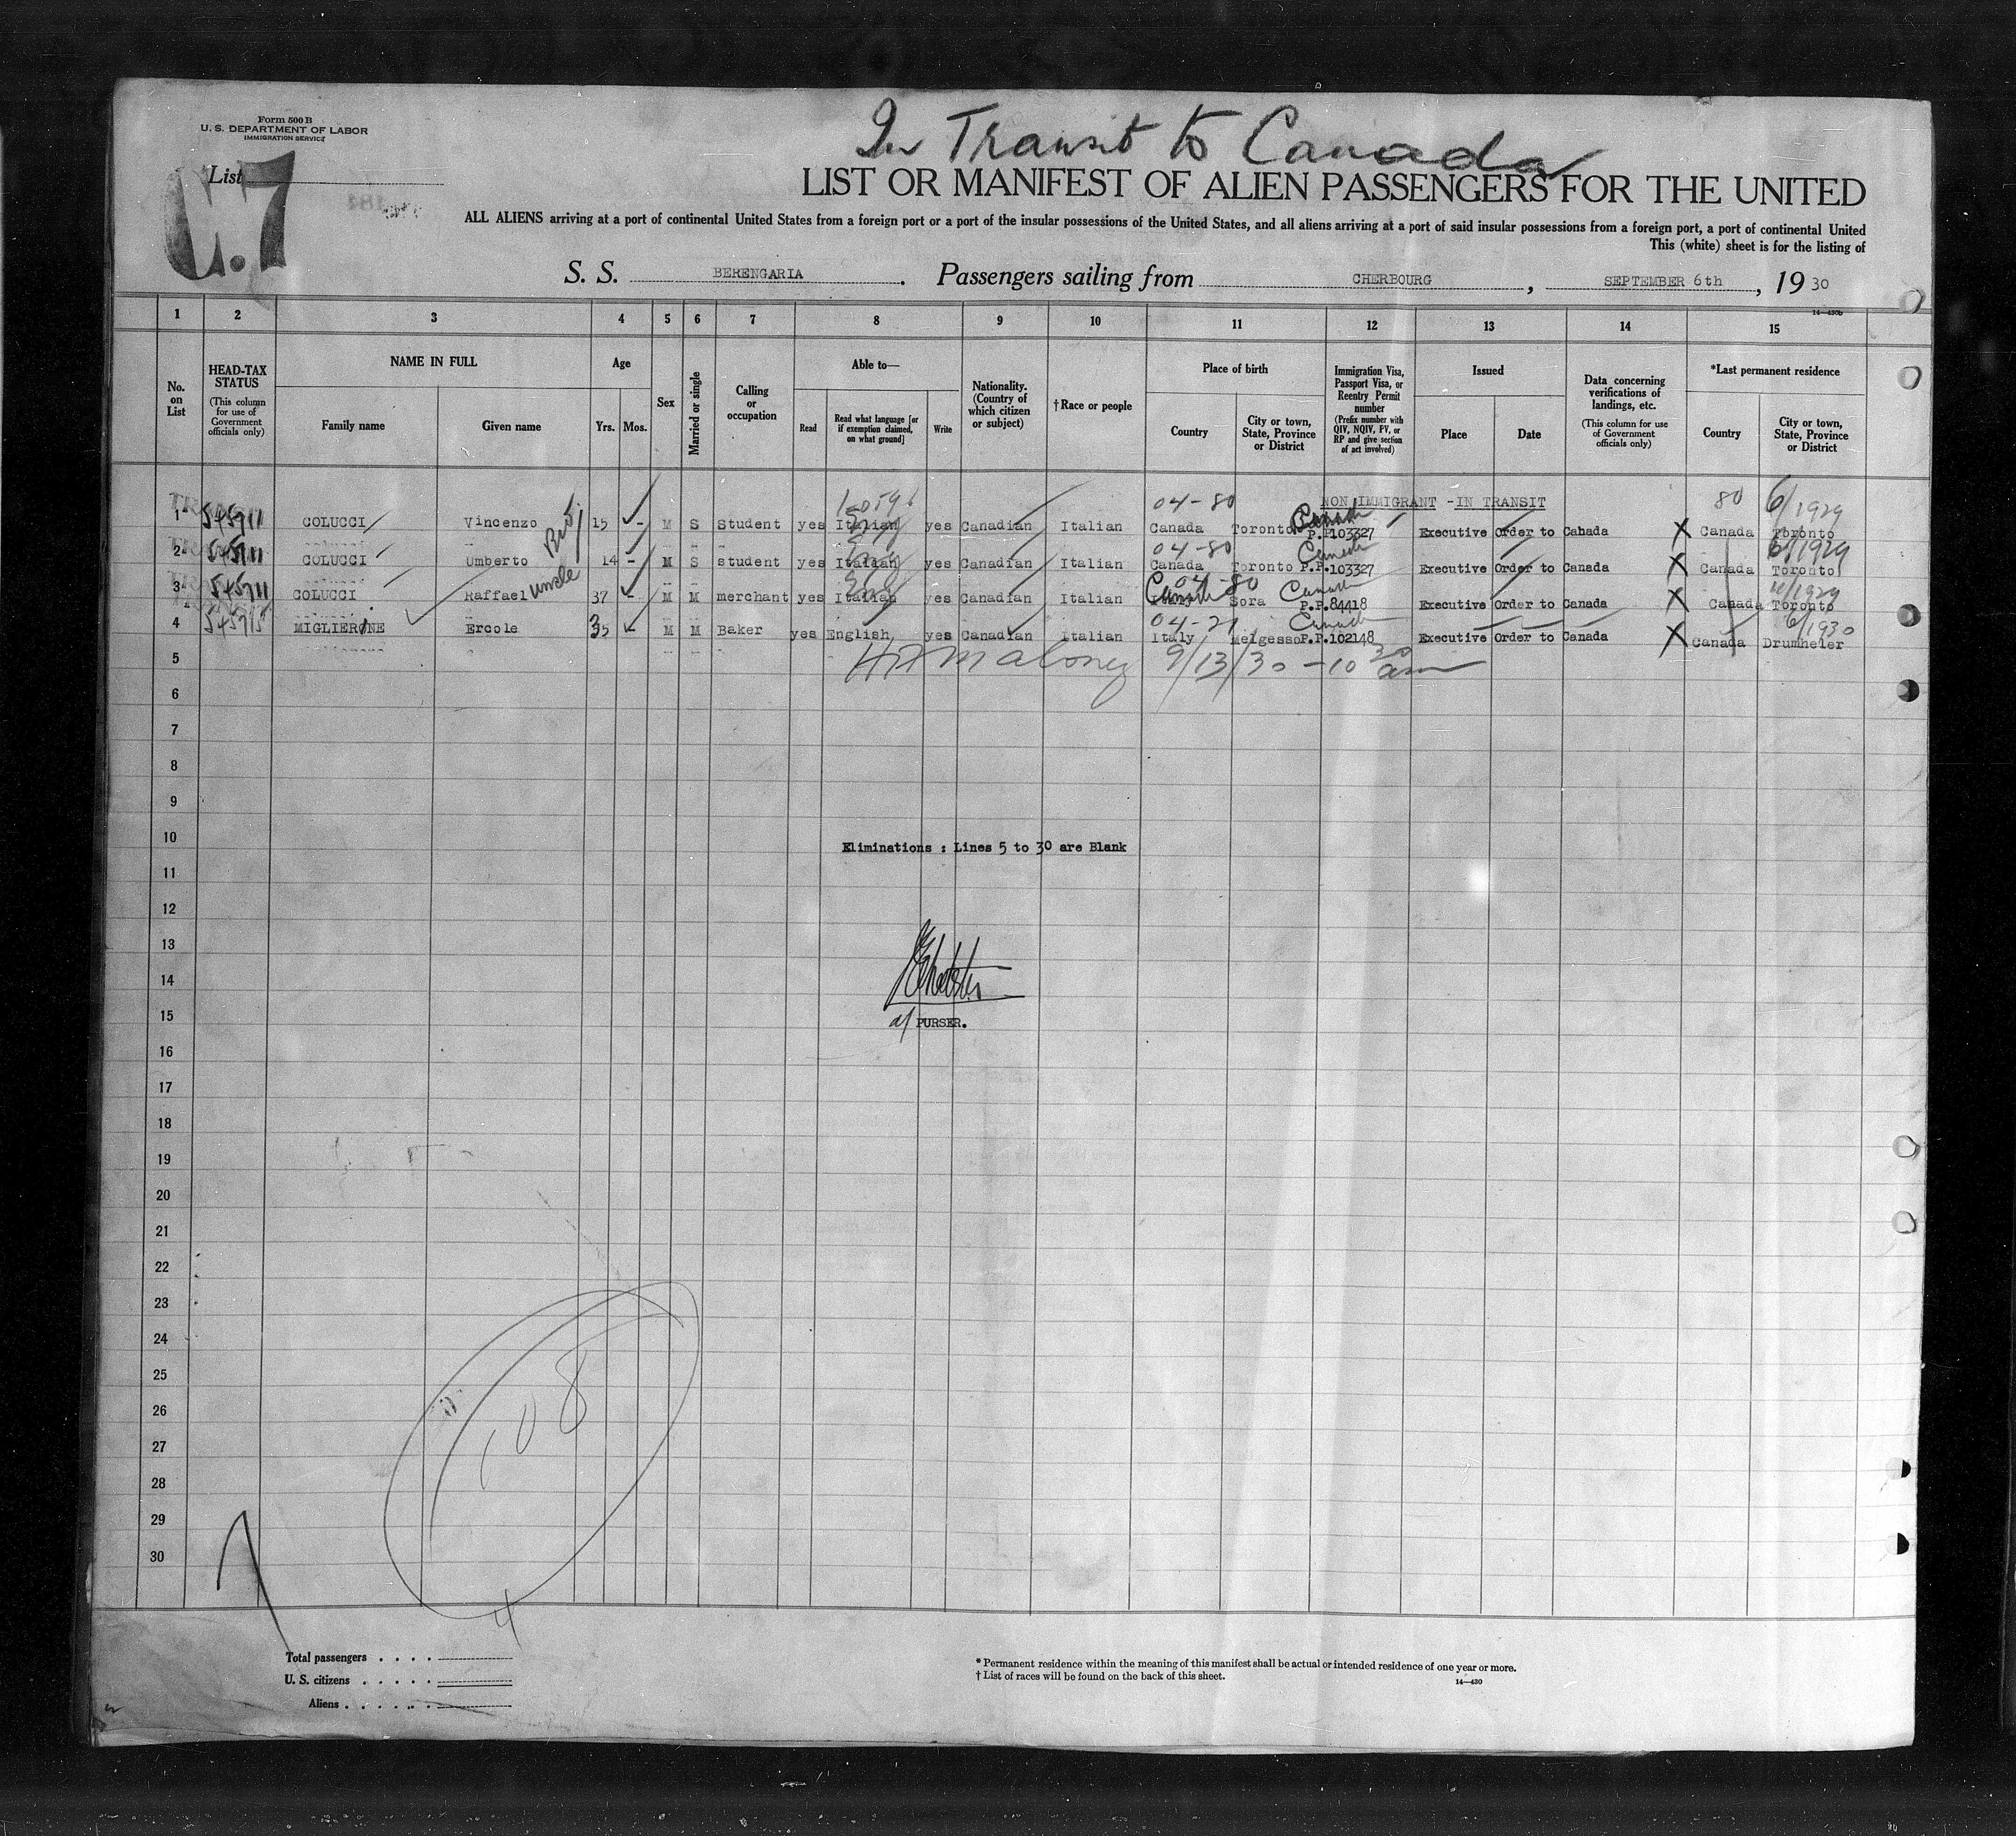 In Transit to Canada
Form 500 B
U. S. DEPARTMENT OF LABOR
IMMIGRATION SERVICE
List
C.7
LIST OR MANIFEST OF ALIEN PASSENGERS FOR THE UNITED
ALL ALIENS arriving at a port of continental United States from a foreign port or a port of the insular possessions of the United States, and all aliens arriving at a port of said insular possessions from a foreign port, a port of continental United
This (white) sheet is for the listing of
S. S. BERENGARIA. Passengers sailing from CHERBOURG, SEPTEMBER 6th, 19 30
14—430b
1 2 3 4 5 6 7 8 9 10 11 12 13 14 15
No. on List
HEAD-TAX STATUS (This column for use of Government officials only)
NAME IN FULL
Family name Given name
Age
Yrs. Mos.
Sex
Married or single
Calling or occupation
Able to—
Read Read what language [or if exemption claimed, on what ground] Write
Nationality. (Country of which citizen or subject)
† Race or people
Place of birth
Country City or town, State, Province or District
Immigration Visa, Passport Visa, or Reentry Permit number (Prefix number with QIV, NQIV, PV, or RP and give section of act involved)
Issued
Place Date
Data concerning verifications of landings, etc. (This column for use of Government officials only)
*Last permanent residence
Country City or town, State, Province or District
04-80 NON IMMIGRANT - IN TRANSIT 80 6/1929
1 COLUCCI Vincenzo 15 - M S Student yes Italian Eng yes Canadian Italian Canada Toronto Canada P.P.103327 Executive Order to Cabada X Canada Toronto
04-80 Canada 6/1929
2 COLUCCI Umberto 14 - M S student yes Italian Eng yes Canadian Italian Canada Toronto P.P.103327 Executive Order to Canada X Canada Toronto
04-80 Canada 1929
3 COLUCCI Raffael uncle 37 - M M merchant yes Italian Eng yes Canadian Italian Sora P.P.84418 Executive Order to Canada X Canada Toronto
04-21 Canada 6/1930
4 MIGLIERINE Ercole 35 M M Baker yes English yes Canadian Italian Italy Melgesso P.P.102148 Executive Order to Canada X Canada Drumheler
5 Maloney 9/13/30 - 10 30 am
6
7
8
9
10
Eliminations : Lines 5 to 30 are Blank
11
12
13
14
15
PURSER.
16
17
18
19
20
21
22
23
24
25
26
108
27
28
29
30
4
Total passengers
U. S. citizens
Aliens
* Permanent residence within the meaning of this manifest shall be actual or intended residence of one year or more.
† List of races will be found on the back of this sheet.
14—430